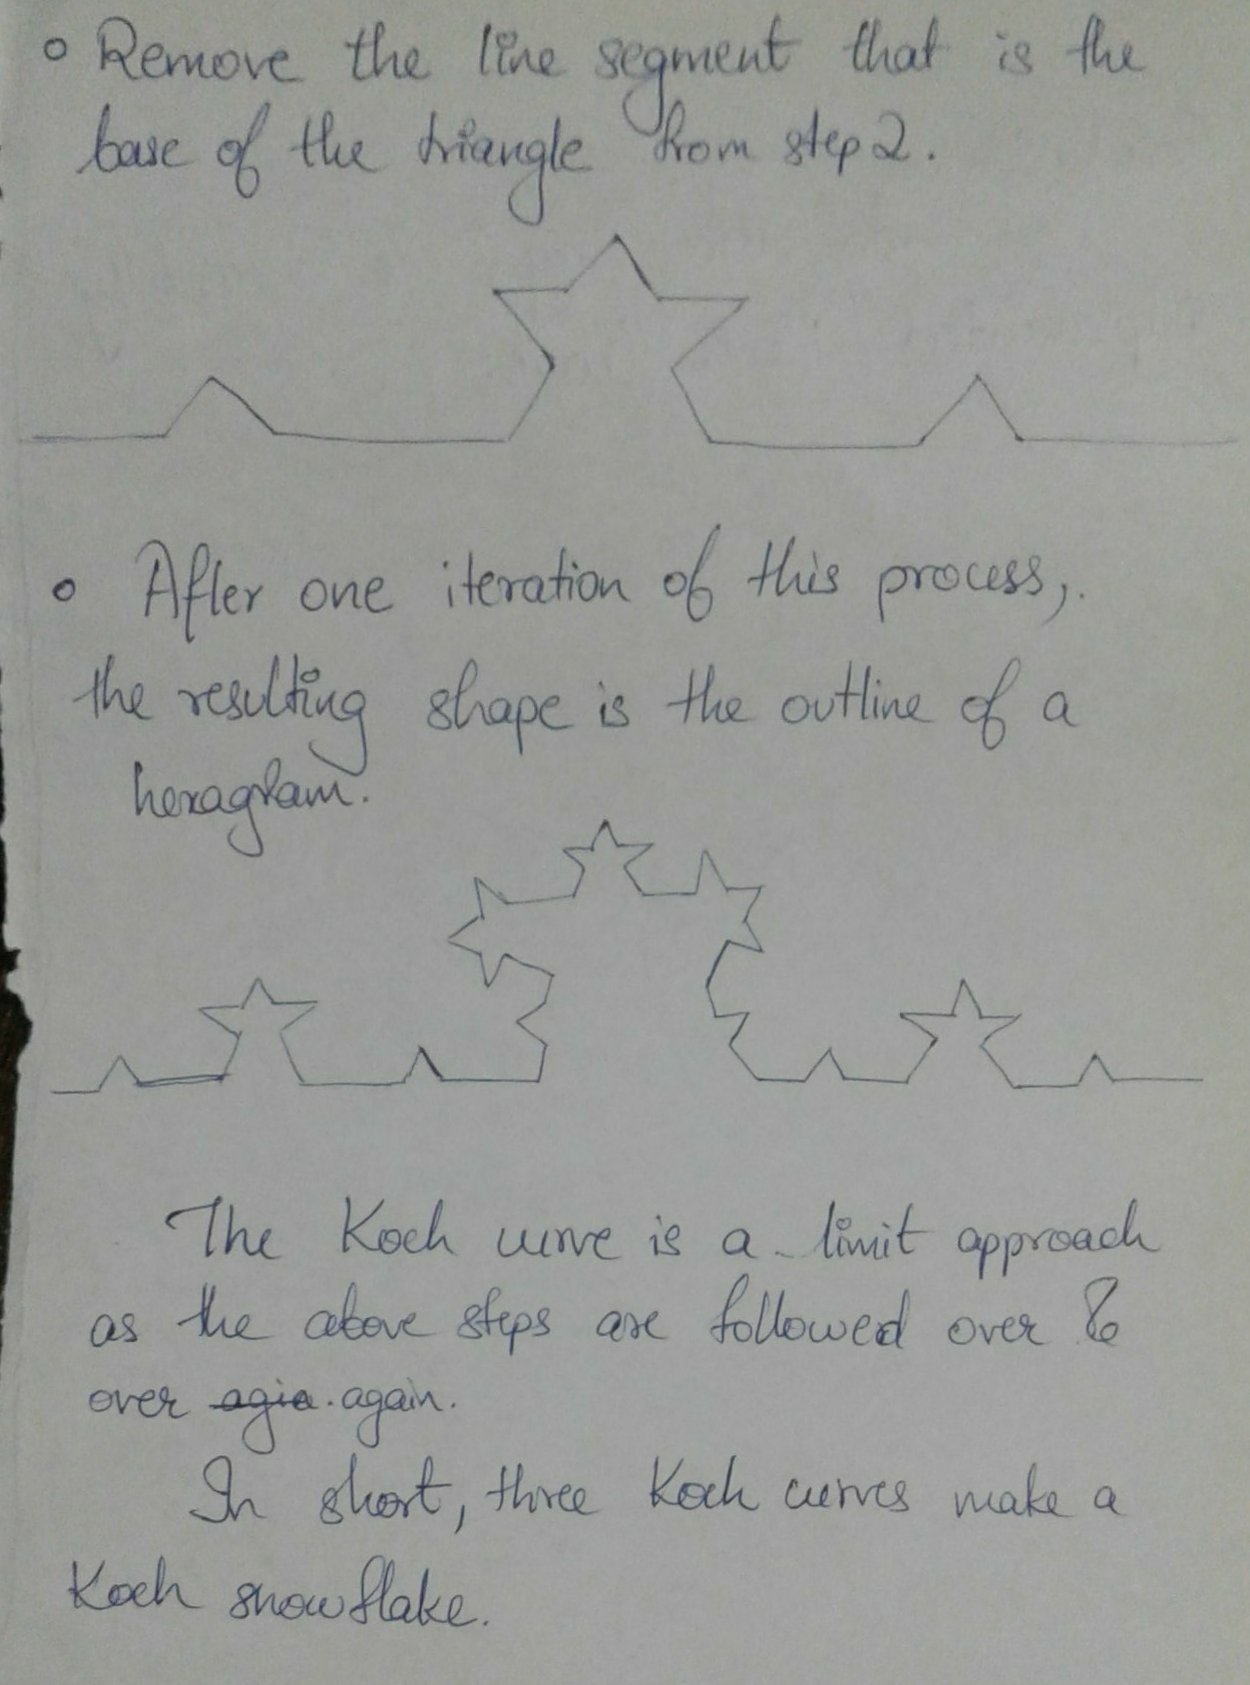 ◦ Remove the line segment that is the
base of the triangle from step 2.
◦ After one iteration of this process,.
the resulting shape is the outline of a
hexagram.
The Koch curve is a limit approach
as the above steps are followed over &
over agia. again.
In short, three Koch curves make a
Koch snowflake.